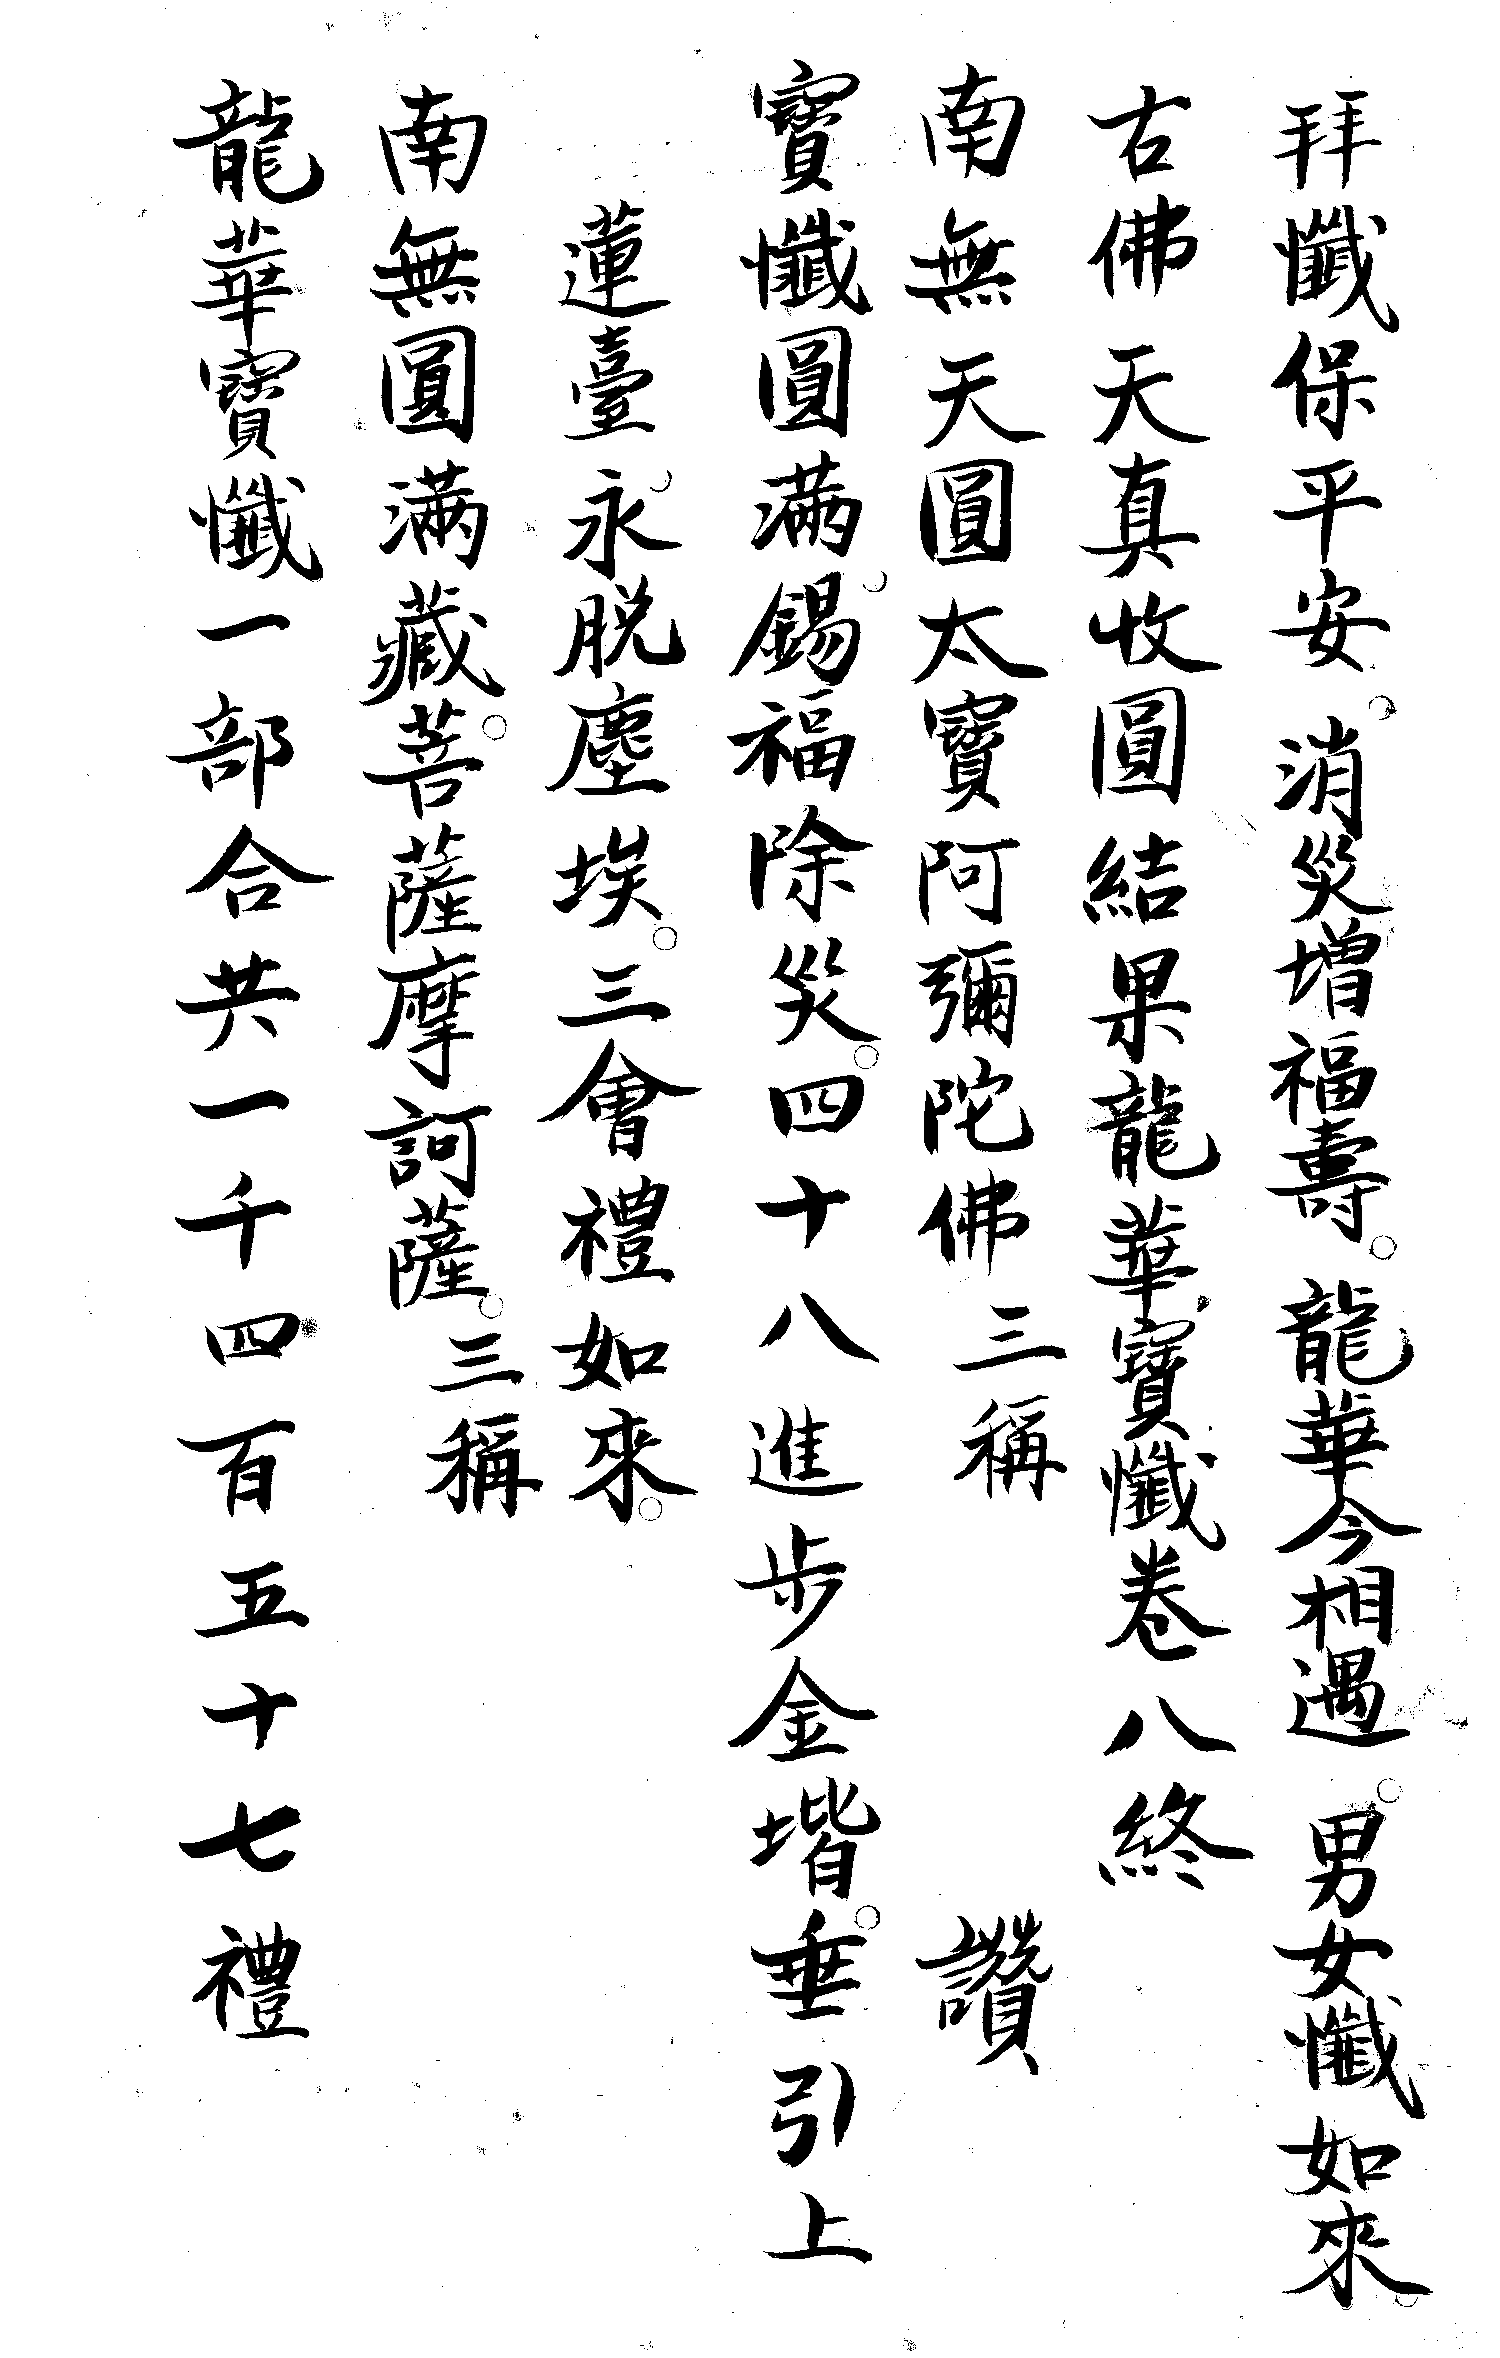 拜懺保平安。消災增福壽。龍華今相遇。男女懺如來。
古佛天真收圓結果龍華寶懺卷八終
南無天圓太寶阿彌陀佛三稱　讚
寶懺圓滿。錫福除災。四十八進步金堦。垂引上
蓮臺。永脫塵埃。三會禮如來。
南無圓滿藏。菩薩摩訶薩。三稱
龍華寶懺一部合共一千四百五十七禮